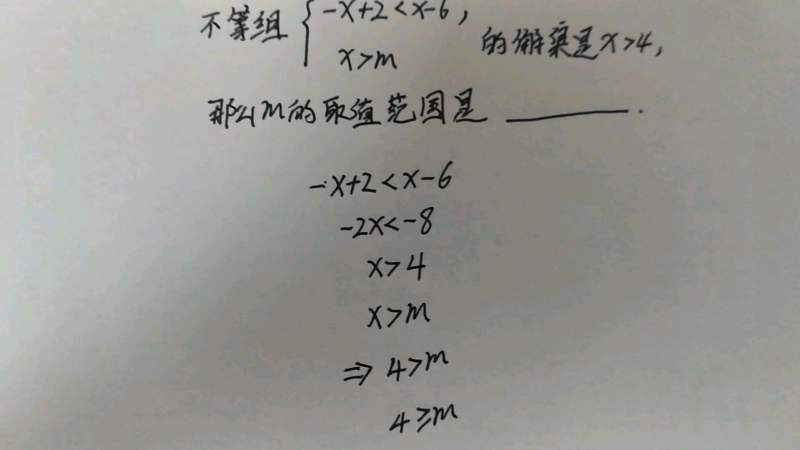 不等组 { -x+2<x-6,
x>m 的解集是x>4,
那么m的取值范围是 ______.
-x+2<x-6
-2x<-8
x>4
x>m
⇒ 4>m
4≥m